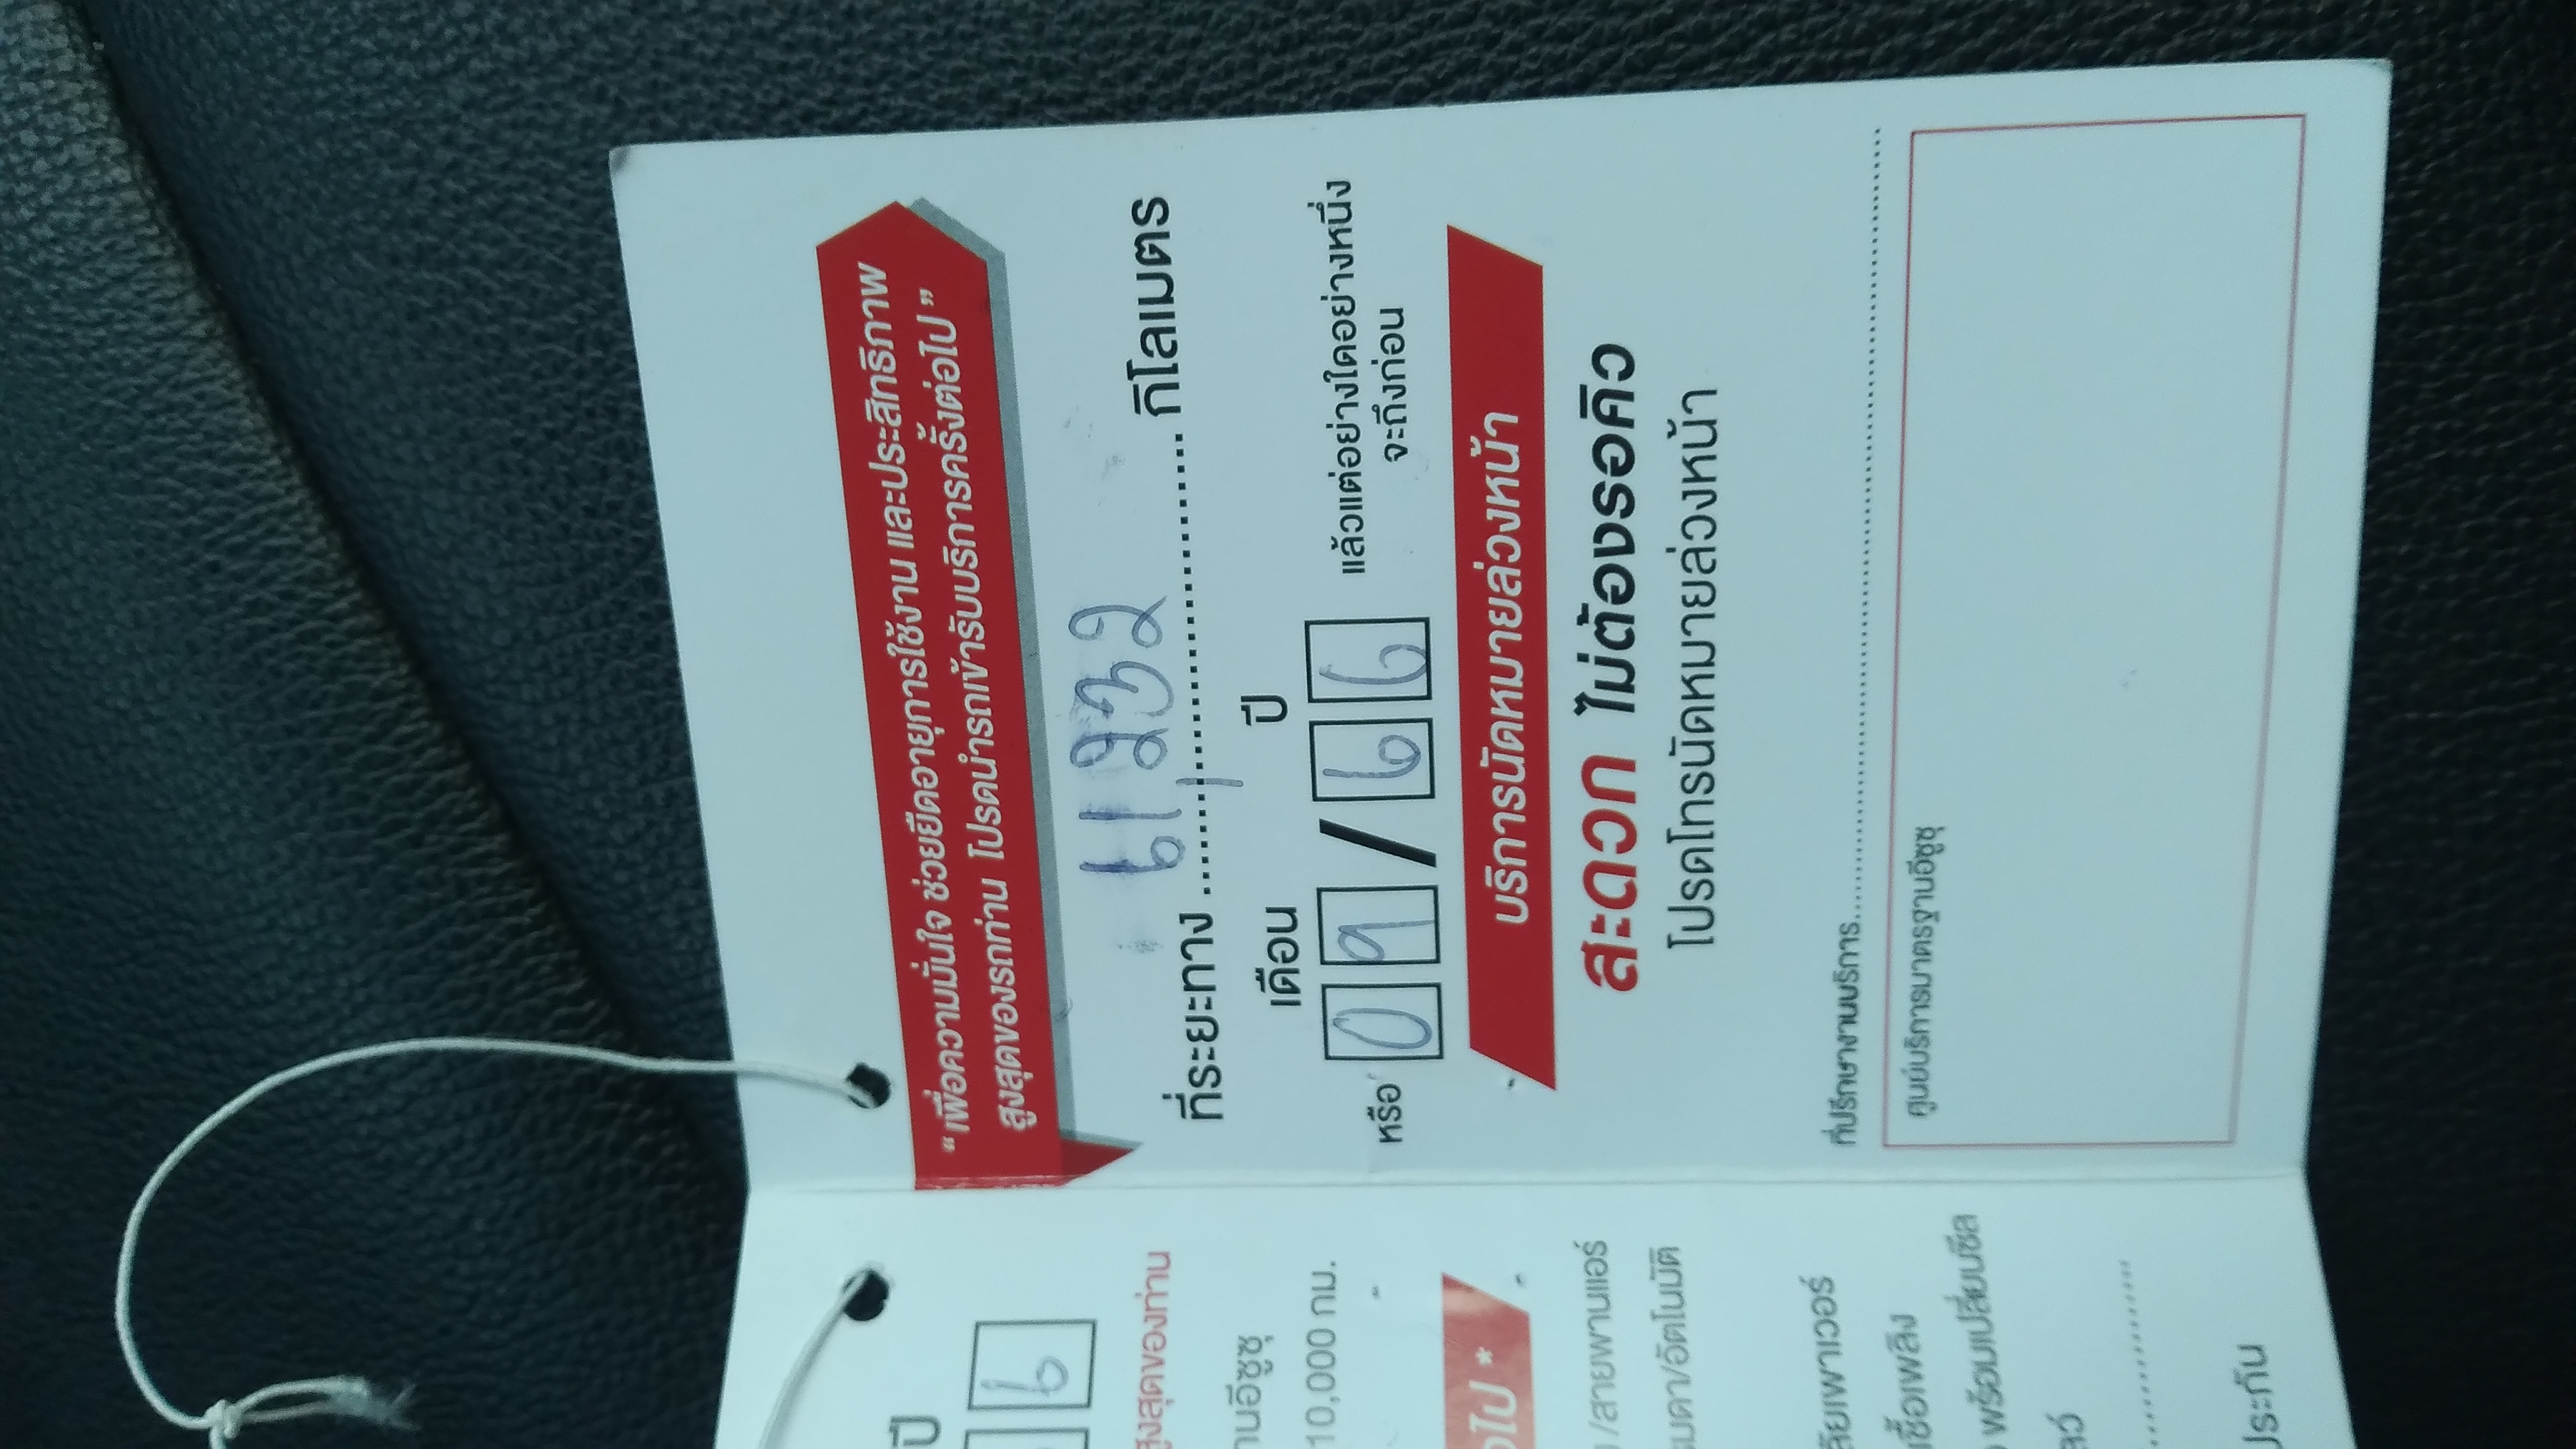 ปี
6
สูงสุดของท่าน
านอีซูซุ
10,000 กม.
อไป *
/สายพานแอร์
รมดา/อัตโนมัติ
ลัยเพาเวอร์
เชื้อเพลิง
พร้อมเปลี่ยนซีล
ลว์
ประกัน
“ เพื่อความมั่นใจ ช่วยยืดอายุการใช้งาน และประสิทธิภาพ
สูงสุดของรถท่าน โปรดนำรถเข้ารับบริการครั้งต่อไป ”
ที่ระยะทาง 61,232 กิโลเมตร
เดือน ปี
หรือ 09 / 66 แล้วแต่อย่างใดอย่างหนึ่ง
จะถึงก่อน
บริการนัดหมายล่วงหน้า
สะดวก ไม่ต้องรอคิว
โปรดโทรนัดหมายล่วงหน้า
ที่ปรึกษางานบริการ
ศูนย์บริการมาตรฐานอีซูซุ